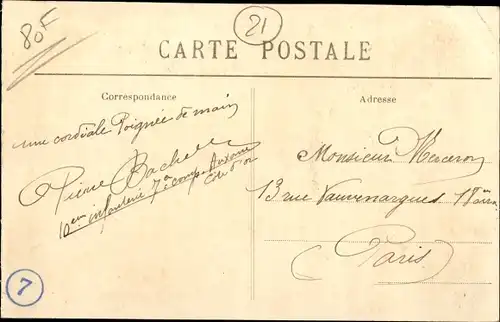 80F
21
CARTE POSTALE
Correspondance
Adresse
une cordiale Poignée de main
Pierre Bachelle
10em infanterie 7e comp. Auxonne
Côte d'or
Monsieur Merceron
13 rue Vauvenargues 18
Paris
7